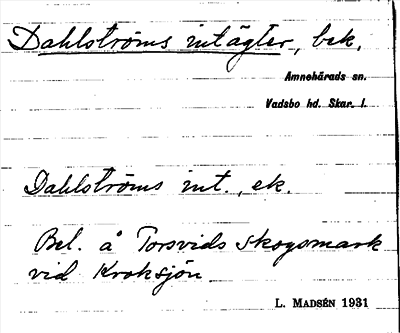 Dahlströms intägter, bek.
Amnehärads sn.
Vadsbo hd. Skar. l.
Dahlströms int., ek.
Bel. å Torsvids skogsmark
vid Kroksjön.
L. MADSÉN 1931